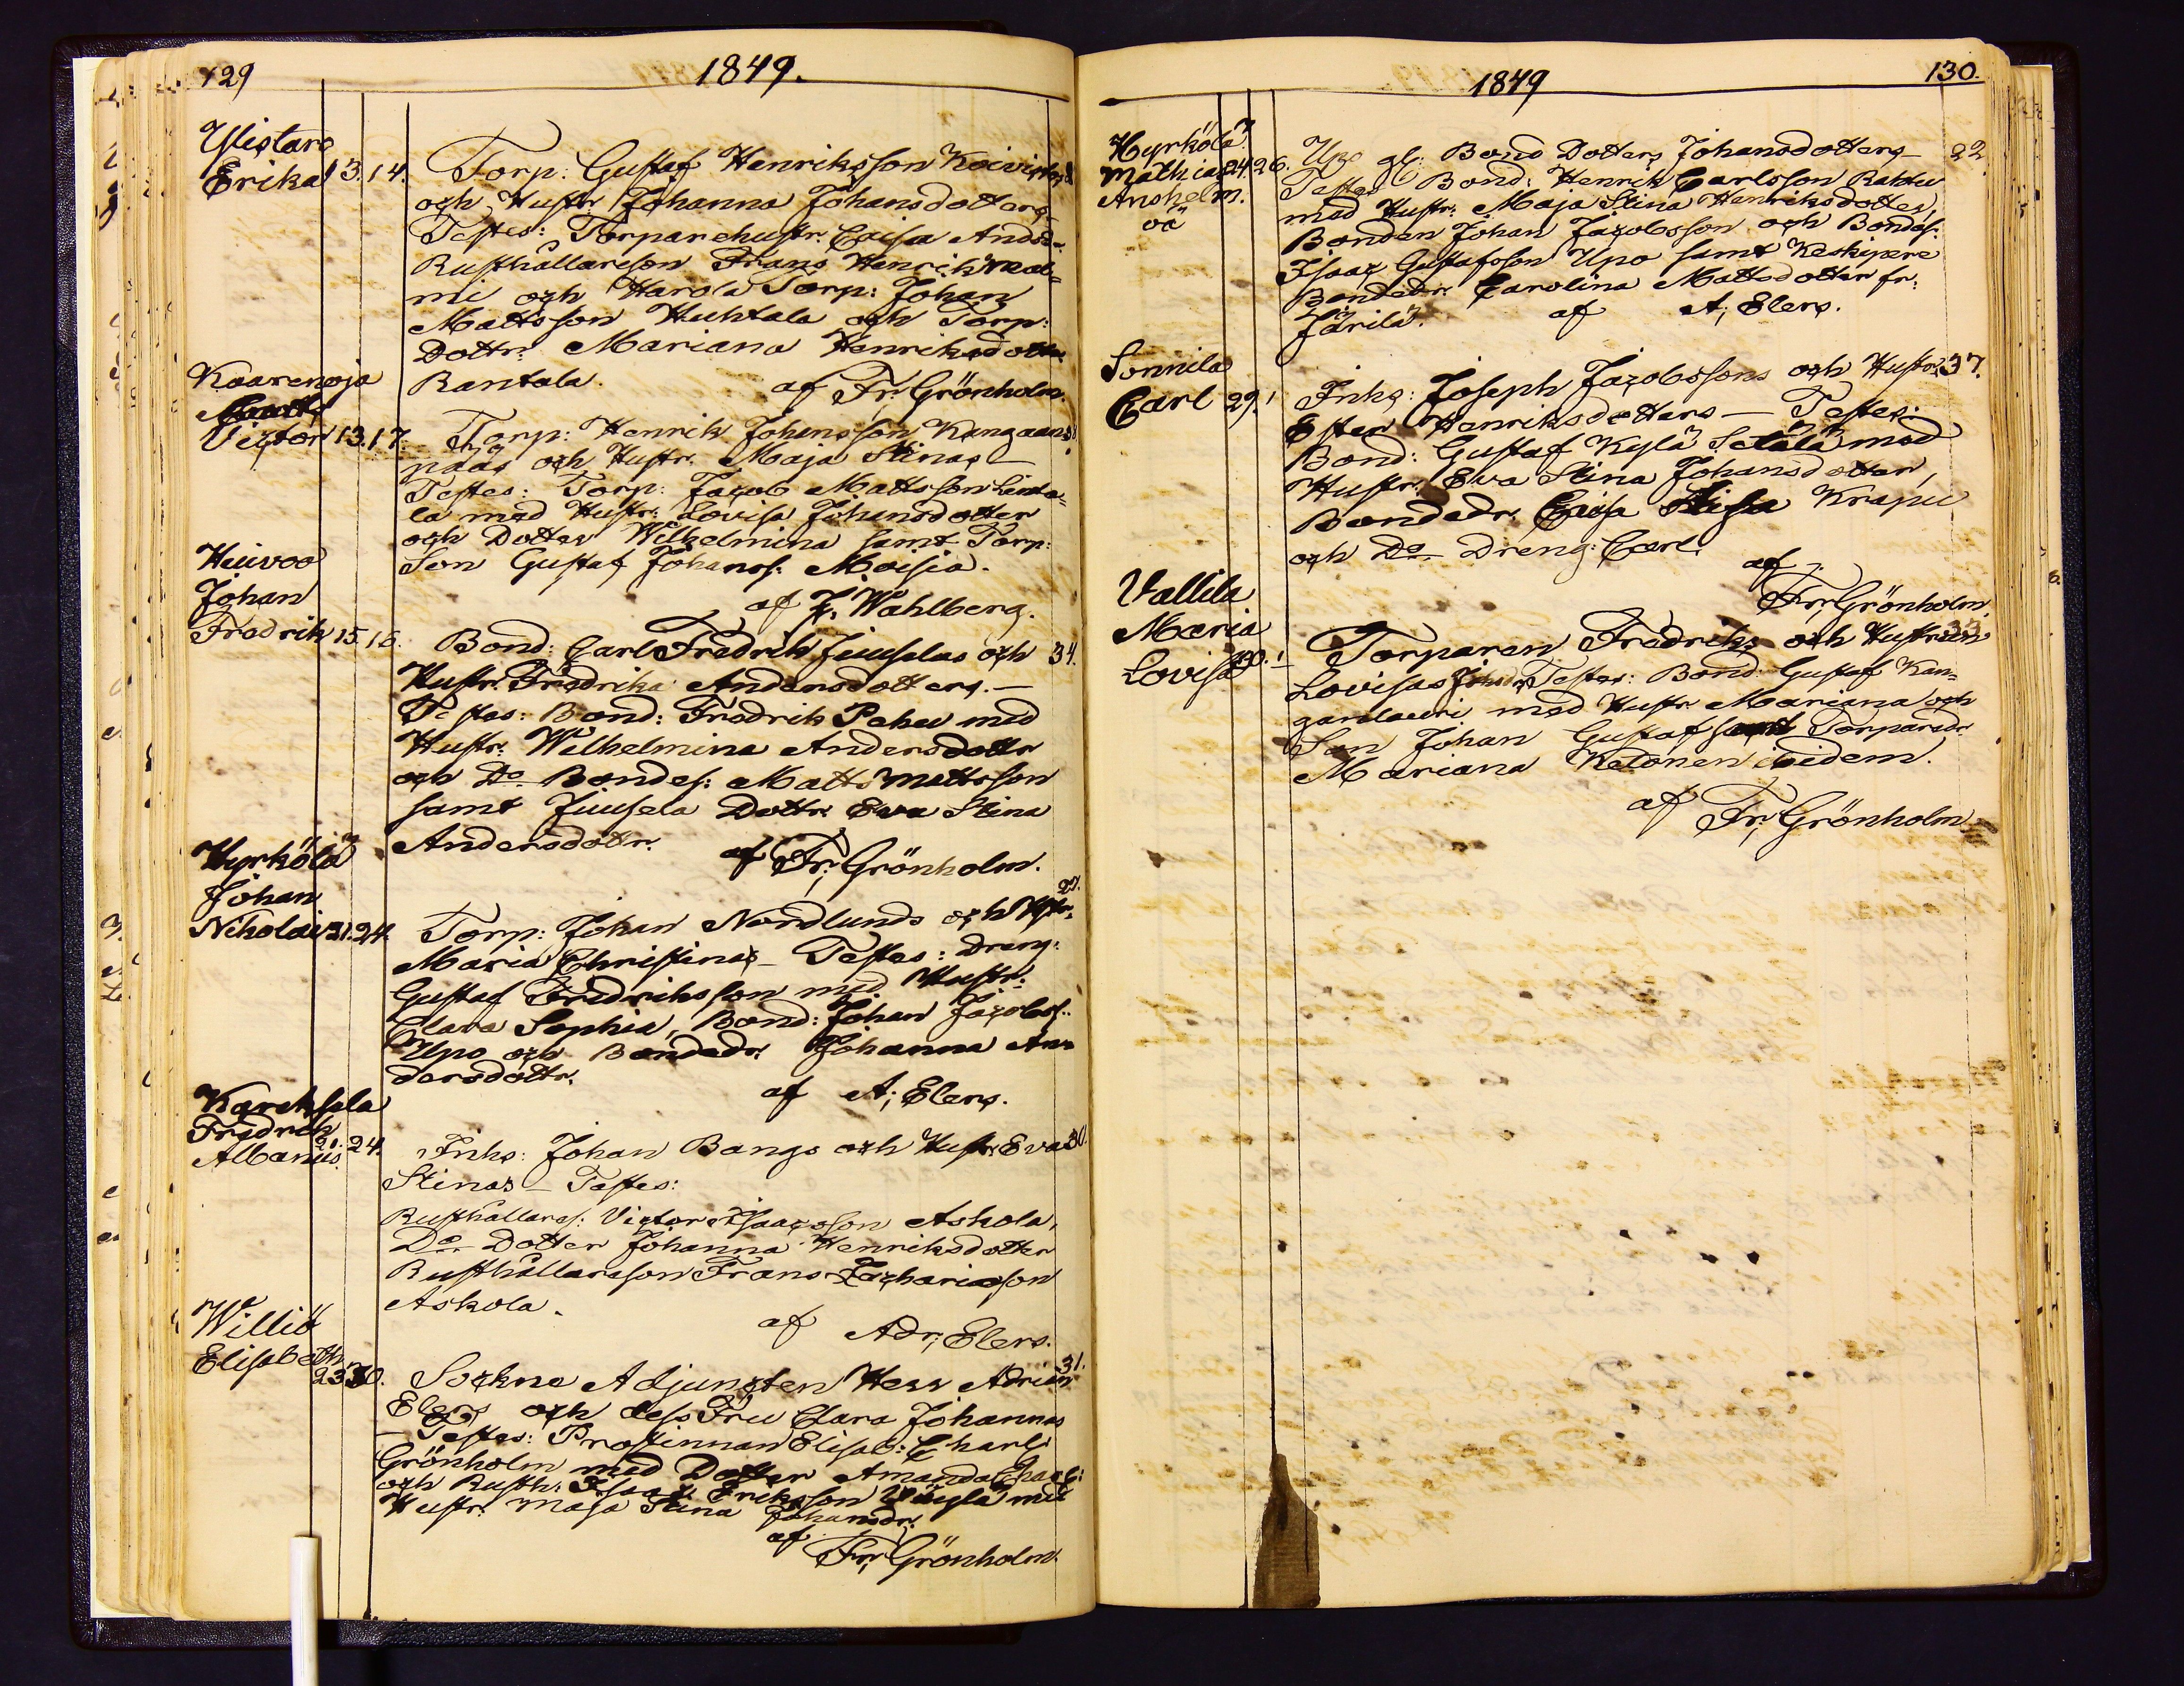 129
1849.
Ylistaro
Erika 13.14. Torp: Gustaf Henriksson Koivisto
och Hustr Johanna Johansdotters
Testes: Torparehustr. Caisa Andsdr.
Rusthållareson Frans Henrik
mi och Harola Torp: Johan
Mattsson Huhtala och Torp:
Dottr. Mariana Henriksdotter
Rantala. af Fr: Grönholm.
Kaarenoja
Victor 13.17. Torp: Henrik Johansson Kangaan
pääs och Hustr. Maja Stinas —
Testes: Torp: Jacob Mattsson
la med Hustr: Lovisa Johansdotter
och Dotter Wilhelmina samt Torp:
Son Gustaf Johanss. Moisia.
af F. Wahlberg.
Heivoo
Johan
Fredrik 15.16. Bond: Carl Fredrik Juuselas och 34.
Hustr. Fredrika Andersdotters. —
Testes: Bond: Fredrik Pahu med
Hustr. Wilhelmina Andersdottr
och Do Bondes: Matts Mattsson
samt Juusela Dottr. Eva Stina
Andersdottr. af Fr; Grönholm.
Hyrkölä
Johan
Nikolai 21.24. Torp: Johan Nordlunds och Hstr. 27.
Maria Christinas — Testes: Dreng:
Gustaf Fredriksson med Hustr:
Clara Sophia, Bond: Johan Jacobss.
Upo och Bondedr. Johanna An-
dersdottr. af A; Elers.
Karehsela
Fredrik
Albanus. 21.24. Inhs: Johan Bangs och Hustr Eva 30.
Stinas — Testes:
Rusthållares: Victor Isaacsson Askola,
Do Dotter Johanna Henriksdotter
Rusthållareson Frans Zachariasson
Askola.
af Adr; Elers.
Williö
Elisabeth
23.30. Sockne Adjuncten Herr Adrian 31.
Elers och dess Fru Clara Johannas
— Testes: Prostinnan Elisab: Charl:
Grönholm med Dotter Amanda Charl:
och Rusth: Isaac Eriksson Yliylä med
Hustr. Maja Stina Johansdr.
af Fr; Grönholm.
1849
130.
Hyrkölä
Mathias 24.26. Upo gl: Bond Dotters Johansdotters — 22
Anshelm. Testes Bond: Henrik Carlsson Rahtu
oä med Hustr. Maja Stina Henriksdotter,
Bonden Johan Jacobsson och Bondes:
Isaac Gustafsson Upo samt Keskipere
Bondedr. Carolina Mattsdotter fr:
Järilä. af A; Elers.
Sonnila
Carl 29.1 Inhs: Joseph Jacobssons och Hustr. 37.
Ester Henriksdotters — Testes:
Bond: Gustaf Kylä Setälä med
Hustr. Eva Stina Johansdotter,
Bondedr. Caisa Stisa Krapu
och Do Dreng: Carl.
af
Fr; Grönholm.
Vallila
Maria
Lovisa 30.1 Torparen Fredriks och Hustrun 33
Lovisas Johsdr. Testes: Bond: Gustaf Kan-
ganlauri med Hustr Mariana och
Son Johan Gustaf samt Torparedr.
Mariana Ketonen ibidem.
af Fr; Grönholm